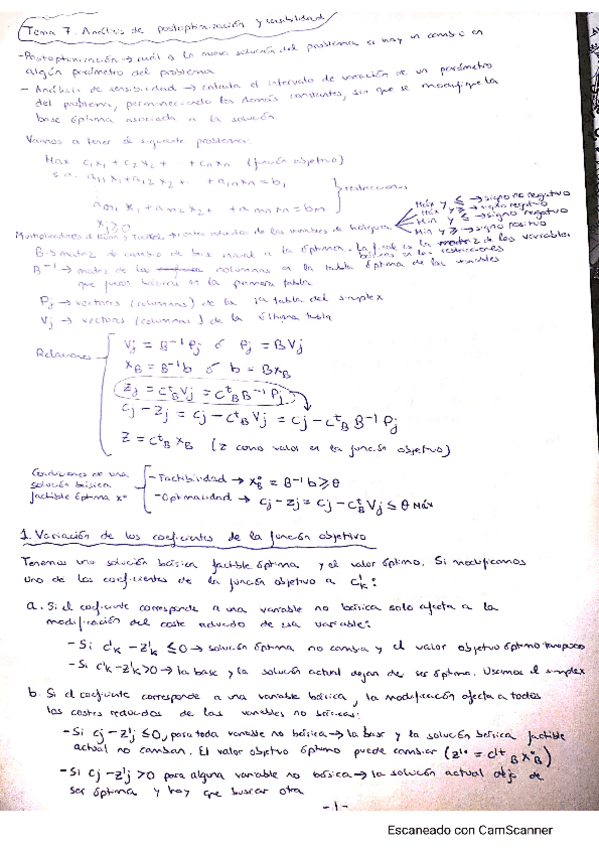 Tema 7. Análisis de postoptimización y sensibilidad
-Postoptimización → cuál es la nueva solución del problema si hay un cambio en
algún parámetro del problema
- Análisis de sensibilidad → calcula el intervalo de variación de un parámetro
del problema, permaneciendo los demás constantes, sin que se modifique la
base óptima asociada a la solución.
Vamos a tener el siguiente problema:
Max c₁x₁ + c₂x₂ + ... + cₙxₙ (función objetivo)
s.a. a₁₁x₁ + a₁₂x₂ + ... + a₁ₙxₙ = b₁
restricciones
aₘ₁x₁ + aₘ₂x₂ + ... + aₘₙxₙ = bₘ
xⱼ ≥ 0
Máx y ≤ → signo negativo
Máx y ≥ → signo positivo
Min y ≤ → signo negativo
Min y ≥ → signo positivo
Multiplicadores de → costes reducidos de las variables de holgura
B → matriz de cambio de base inicial a la óptima. La final es la matriz de las variables
básicas en las restricciones
B⁻¹ → matriz de las columnas en la tabla óptima de las variables
que fueron básicas en la primera tabla
Pⱼ → vectores (columnas) de la 1ª tabla del simplex
Vⱼ → vectores (columnas) de la última tabla
Relaciones
Vⱼ = B⁻¹Pⱼ ó Pⱼ = BVⱼ
x_B = B⁻¹b ó b = Bx_B
zⱼ = cᵗ_B Vⱼ = cᵗ_B B⁻¹ Pⱼ
cⱼ - zⱼ = cⱼ - cᵗ_B Vⱼ = cⱼ - cᵗ_B B⁻¹ Pⱼ
z = cᵗ_B x_B (z como valor en la función objetivo)
Condiciones de una
solución básica
factible óptima x*
- Factibilidad → x*_B = B⁻¹ b ≥ θ
- Optimalidad → cⱼ - zⱼ = cⱼ - cᵗ_B Vⱼ ≤ θ Máx
1. Variación de los coeficientes de la función objetivo
Tenemos una solución básica factible óptima y el valor óptimo. Si modificamos
uno de los coeficientes de la función objetivo a c'ₖ:
a. Si el coeficiente corresponde a una variable no básica solo afecta a la
modificación del coste reducido de esa variable:
- Si c'ₖ - z'ₖ ≤ 0 → solución óptima no cambia y el valor objetivo óptimo tampoco
- Si c'ₖ - z'ₖ > 0 → la base y la solución actual dejan de ser óptima. Usamos el simplex
b. Si el coeficiente corresponde a una variable básica, la modificación afecta a todos
los costes reducidos de las variables no básicas:
- Si cⱼ - z'ⱼ ≤ 0, para toda variable no básica → la base y la solución básica factible
actual no cambian. El valor objetivo óptimo puede cambiar (z'* = c'ᵗ_B x*_B)
- Si cⱼ - z'ⱼ > 0 para alguna variable no básica → la solución actual deja de
ser óptima y hay que buscar otra
- 1 -
Escaneado con CamScanner